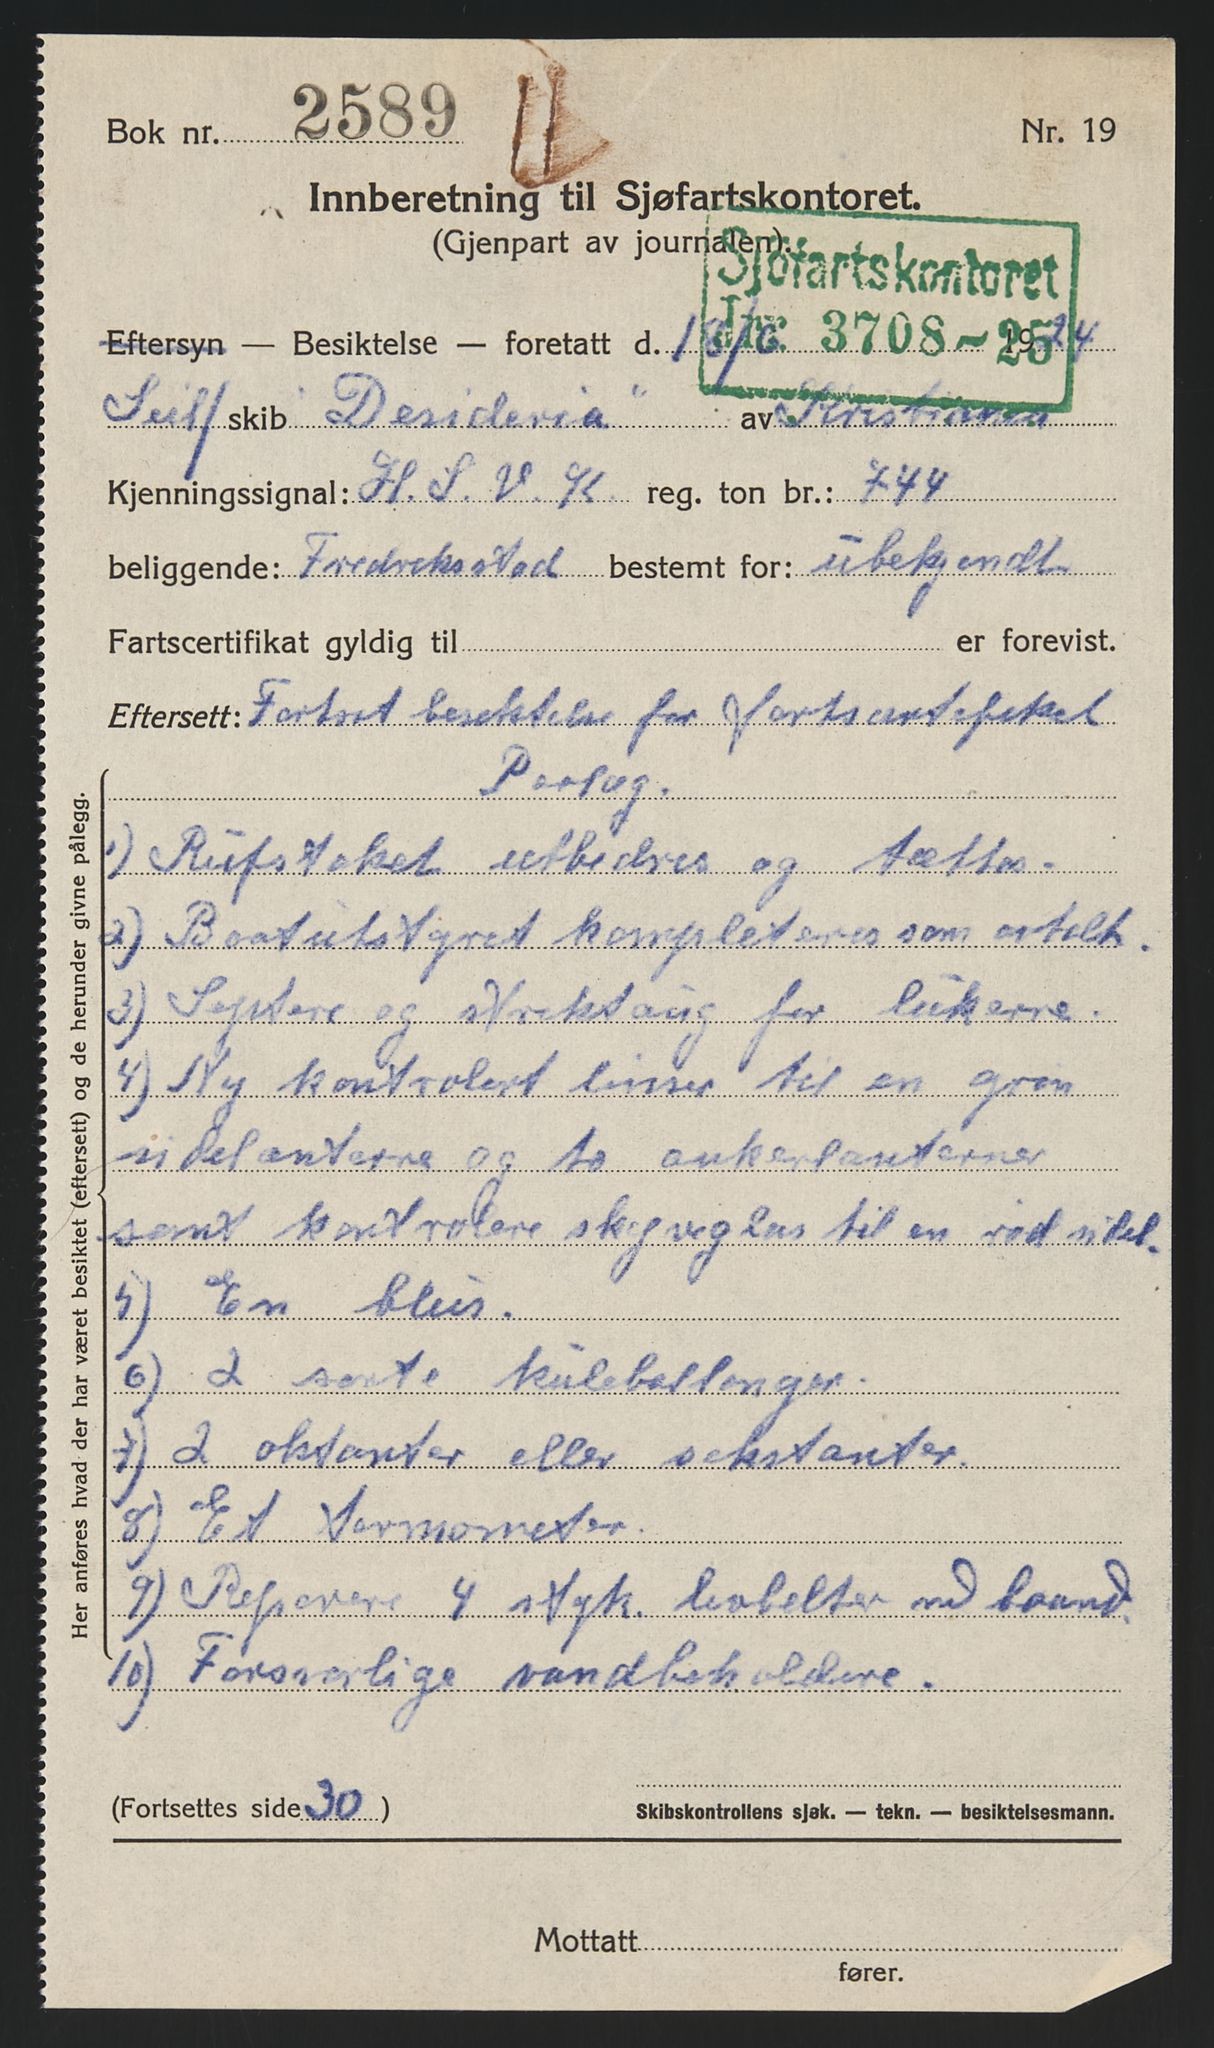 Bok nr. 2589 Nr. 19
Innberetning til Sjøfartskontoret.
(Gjenpart av journalen).
Sjöfartskontoret
Jnr. 3708-25
Eftersyn — Besiktelse — foretatt d. 18/6 1924
Seil/skib "Desideria" av Kristiania
Kjenningssignal: H. S. V. K. reg. ton br.: 744
beliggende: Fredriksstad bestemt for: ubekjendt
Fartscertifikat gyldig til er forevist.
Eftersett: Fortsat besiktelse for fartscertifikat
Paalæg.
1) Rufstaket utbedres og tættes.
2) Baatutstyret kompleteres som avtalt.
3) Septere og strektaug for lukerne.
4) Ny kontrolert linser til en grøn
sidelanterne og to ankerlanterner
samt kontrolere skyveglas til en rød sidel.
5) En blus.
6) 2 sorte kuleballonger.
7) 2 oktanter eller sekstanter.
8) Et termometer.
9) Reparere 4 styk. livbelter med baand.
10) Forsvarlige vandbeholdere.
Her anføres hvad der har været besiktet (eftersett) og de herunder givne pålegg.
(Fortsettes side 30)
Skibskontrollens sjøk. — tekn. — besiktelsesmann.
Mottatt
fører.